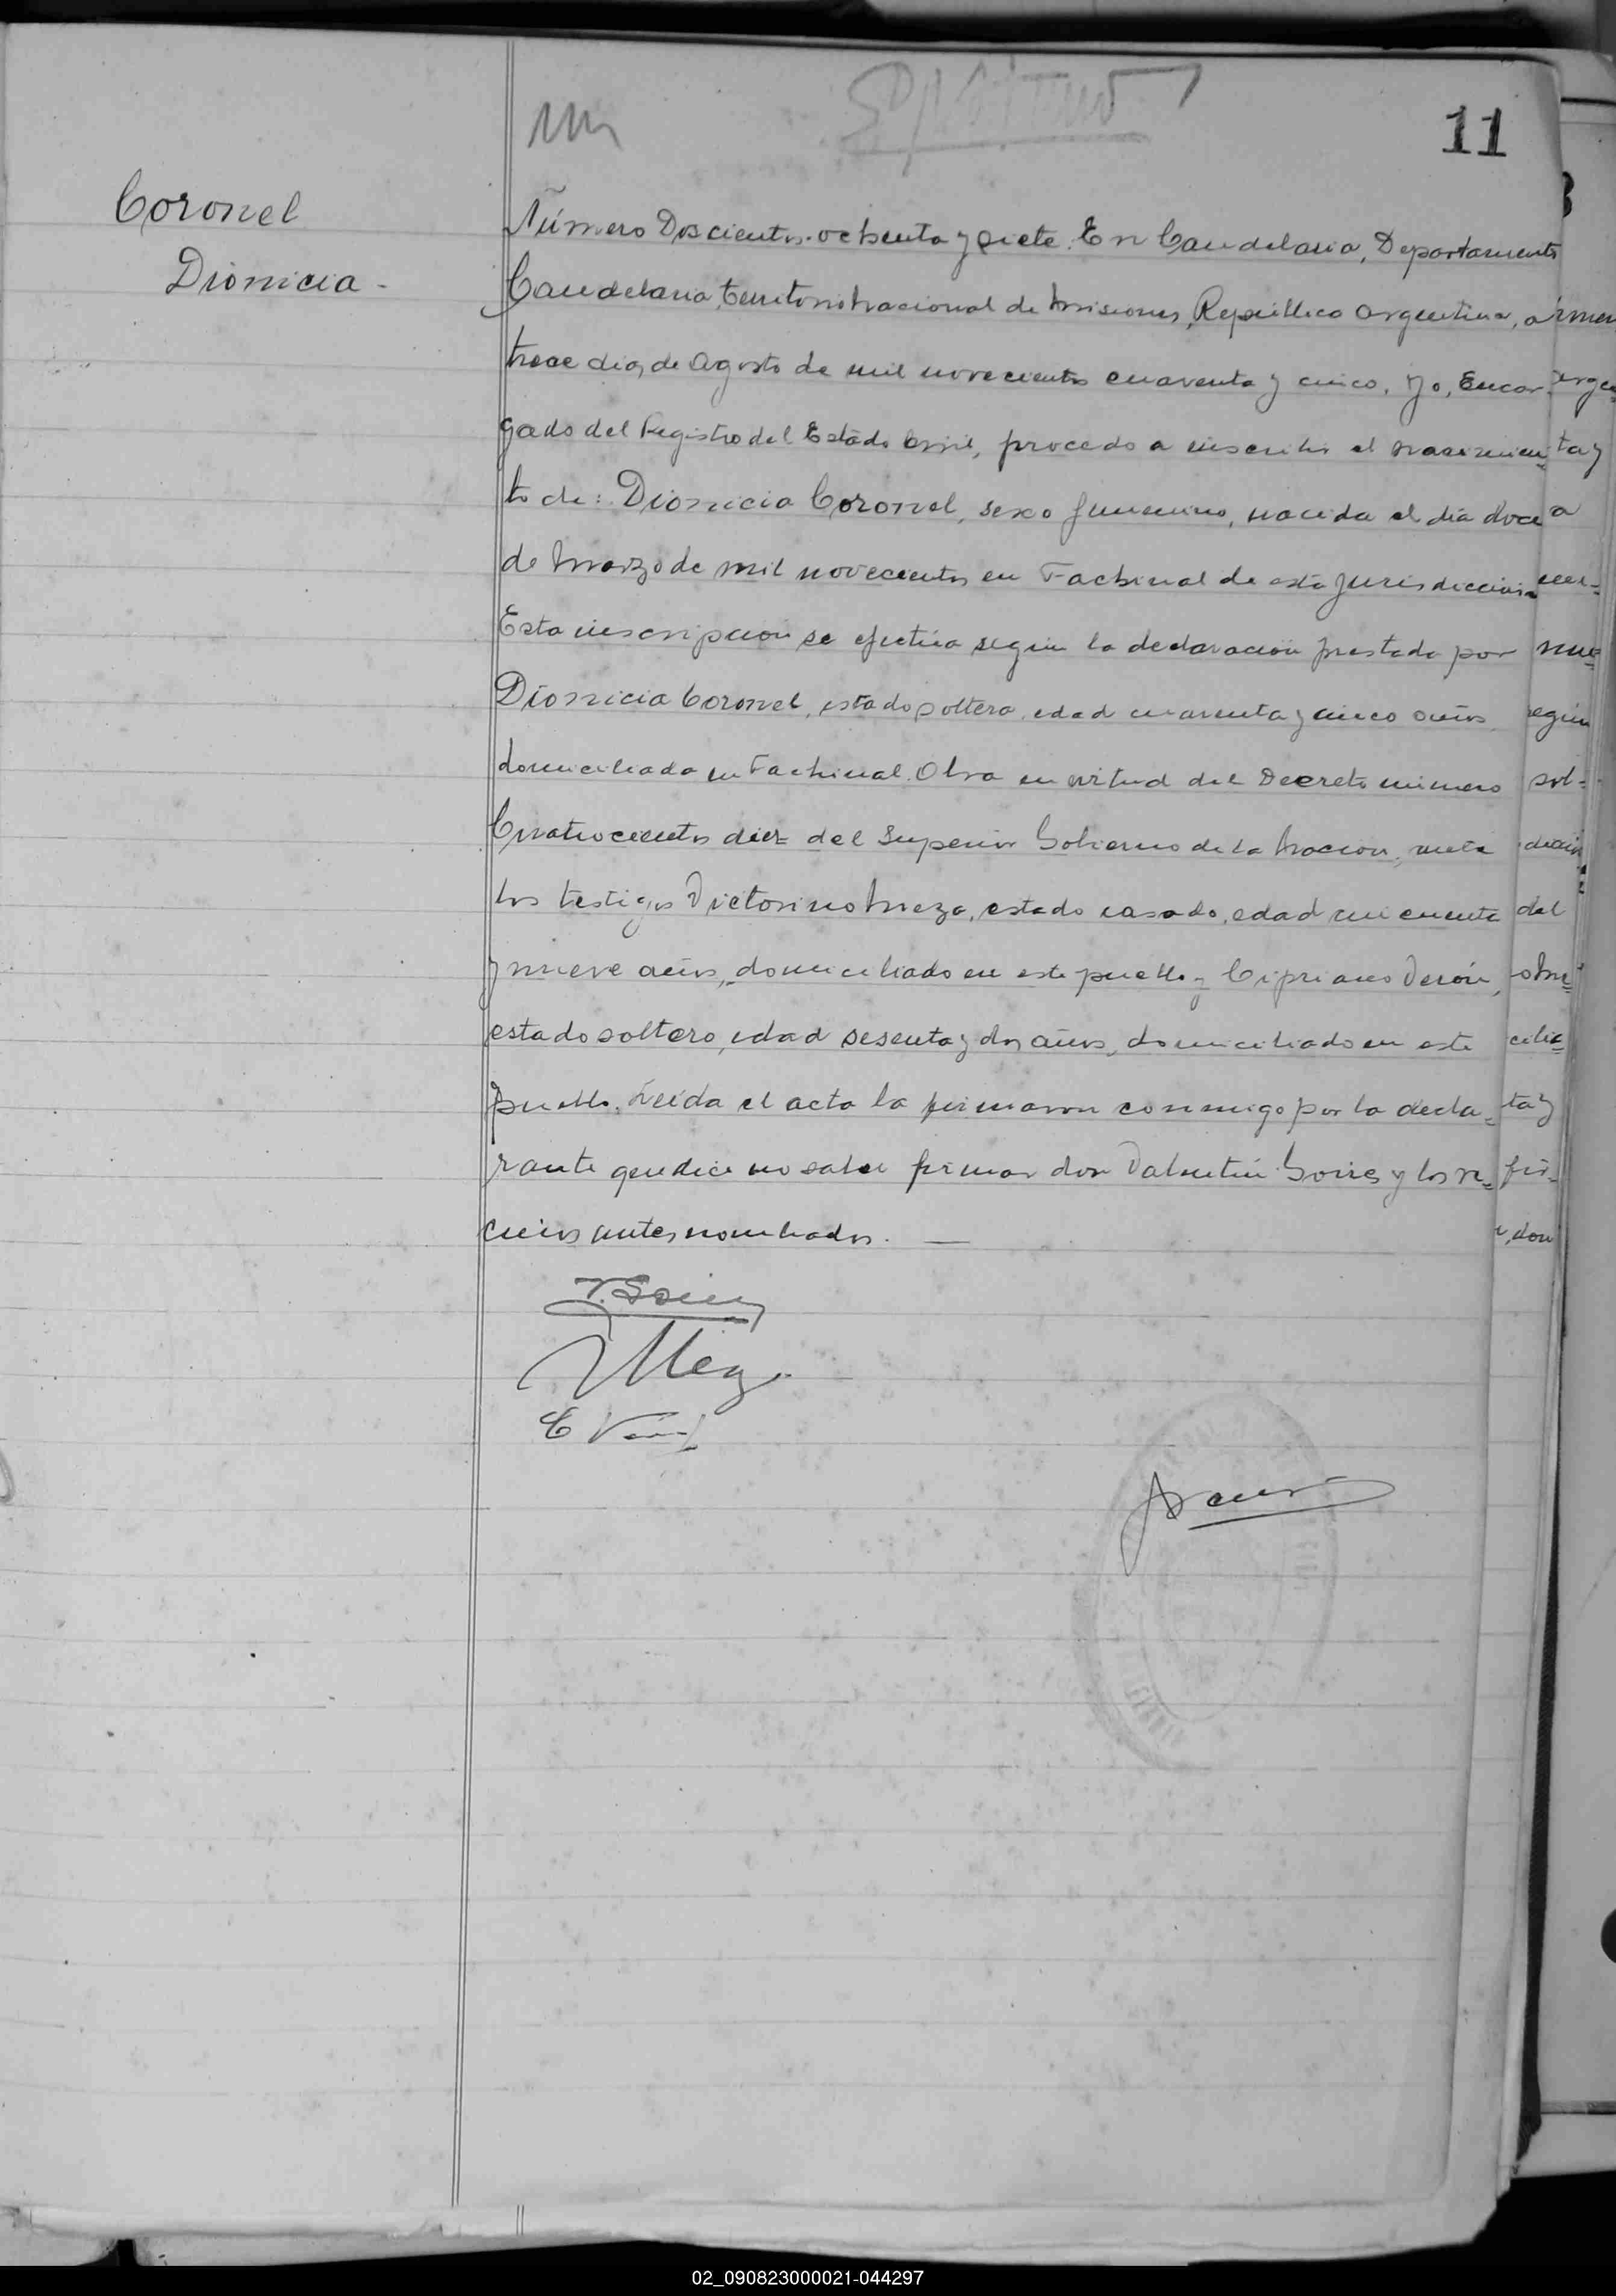 11
Coronel
Dionicia -
Número Doscientos ochenta y siete. En Candelaria, Departamento
Candelaria, Territorio Nacional de Misiones, República Argentina, a
trece días de Agosto de mil novecientos cuarenta y cinco. Yo, Encar-
gado del Registro del Estado Civil, procedo a inscribir el nacimien-
to de: Dionicia Coronel, sexo femenino, nacida el día doce
de Marzo de mil novecientos en Fachinal de esta jurisdicción
Esta inscripción se efectúa según la declaración prestada por
Dionicia Coronel, estado soltera, edad cuarenta y cinco años
domiciliada en Fachinal. Obra en virtud del Decreto número
Cuatrocientos diez del Superior Gobierno de la Nación, ante
los testigos Victorino Meza, estado casado, edad cincuenta
y nueve años, domiciliado en este pueblo y Cipriano Verón,
estado soltero, edad sesenta y dos años, domiciliado en este
pueblo. Leída el acta la firmaron conmigo por la decla-
rante que dice no saber firmar don Valentín Goires y los ve-
cinos antes nombrados. —
V. Goires
VMeza
C Verón
02_090823000021-044297